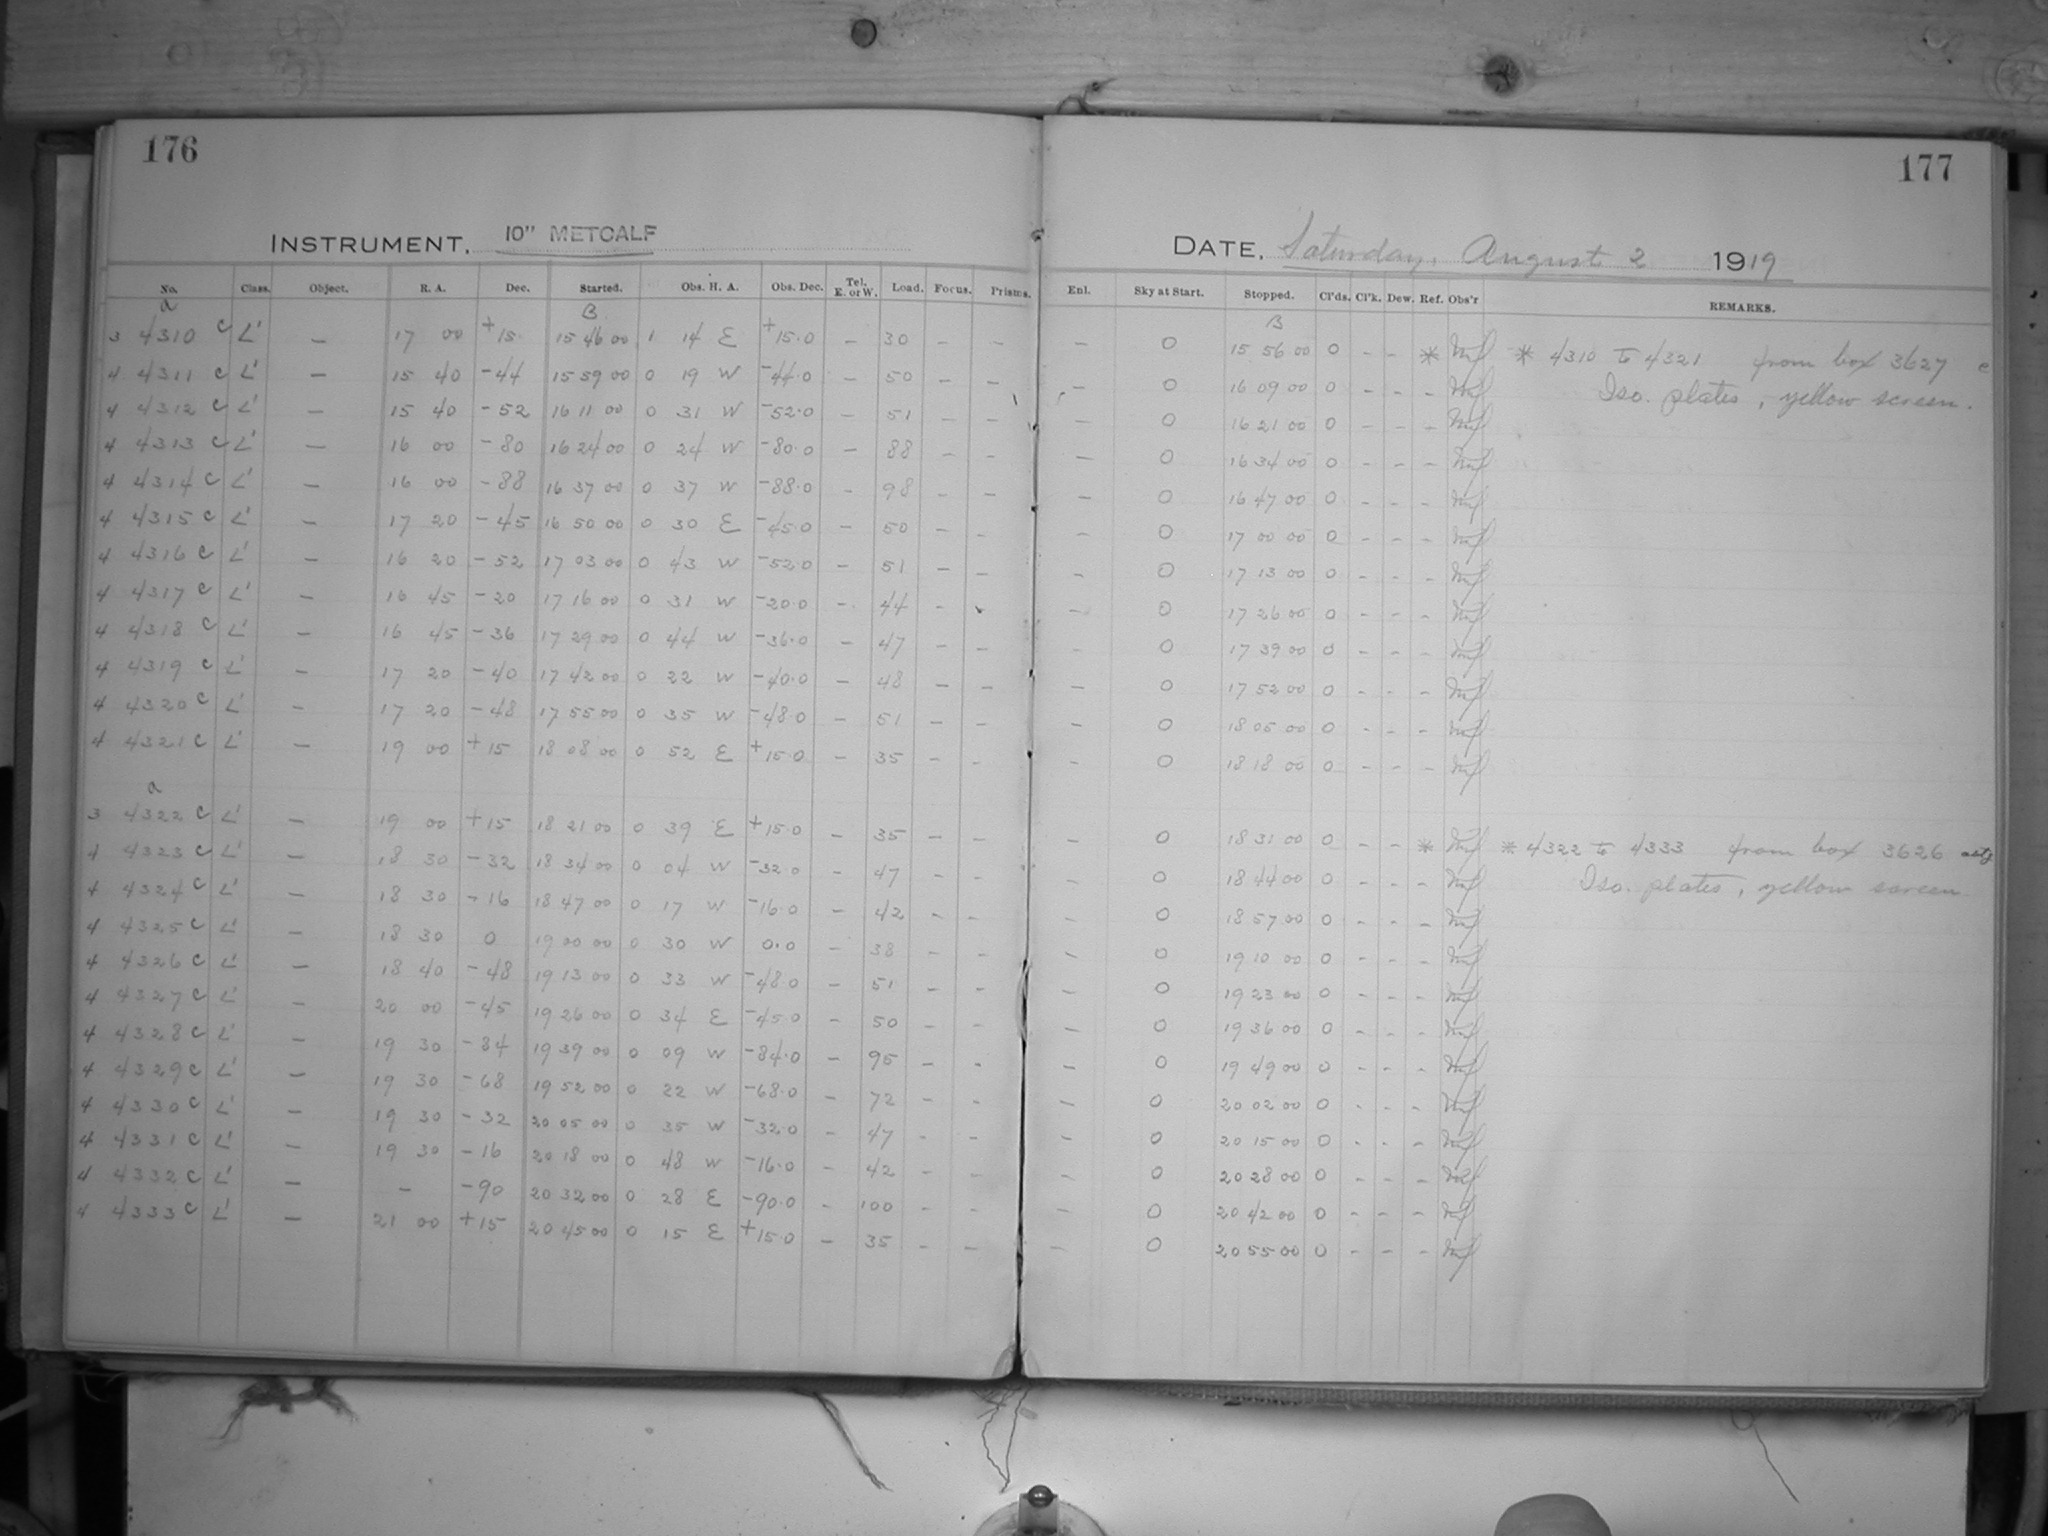 176
177
INSTRUMENT, 10" METCALF
DATE, Saturday, August 2 1919
No. Class. Object. R. A. Dec. Started. Obs. H. A. Obs. Dec. Tel. E. or W. Load. Focus. Prisms. Enl. Sky at Start. Stopped. Cl'ds. Cl'k. Dew. Ref. Obs'r REMARKS.
a B B
3 4310 C L' — 17 00 +15 15 46 00 1 14 E +15.0 — 30 — — — 0 15 56 00 0 - - * * 4310 to 4321 from box 3627 c
4 4311 C L' — 15 40 -44 15 59 00 0 19 W -44.0 — 50 — — — 0 16 09 00 0 - - - Iso. plates, yellow screen.
4 4312 C L' — 15 40 -52 16 11 00 0 31 W -52.0 — 51 — — — 0 16 21 00 0 - - -
4 4313 C L' — 16 00 -80 16 24 00 0 24 W -80.0 — 88 — — — 0 16 34 00 0 - - -
4 4314 C L' — 16 00 -88 16 37 00 0 37 W -88.0 - 98 — — — 0 16 47 00 0 - - -
4 4315 C L' — 17 20 -45 16 50 00 0 30 E -45.0 — 50 — — — 0 17 00 00 0 - - -
4 4316 C L' — 16 20 -52 17 03 00 0 43 W -52.0 — 51 — — — 0 17 13 00 0 - - -
4 4317 C L' — 16 45 -20 17 16 00 0 31 W -20.0 — 44 - - — 0 17 26 00 0 - - -
4 4318 C L' — 16 45 -36 17 29 00 0 44 W -36.0 — 47 — — — 0 17 39 00 0 - - -
4 4319 C L' — 17 20 -40 17 42 00 0 22 W -40.0 — 48 — — — 0 17 52 00 0 - - -
4 4320 C L' — 17 20 -48 17 55 00 0 35 W -48.0 — 51 — — — 0 18 05 00 0 - - -
4 4321 C L' — 19 00 +15 18 08 00 0 52 E +15.0 — 35 — - — 0 18 18 00 0 - - -
a
3 4322 C L' — 19 00 +15 18 21 00 0 39 E +15.0 — 35 — — — 0 18 31 00 0 - - * * 4322 to 4333 from box 3626
4 4323 C L' — 18 30 -32 18 34 00 0 04 W -32.0 — 47 — — — 0 18 44 00 0 - - - Iso. plates, yellow screen
4 4324 C L' — 18 30 -16 18 47 00 0 17 W -16.0 — 42 — — — 0 18 57 00 0 - - -
4 4325 C L' — 18 30 0 19 00 00 0 30 W 0.0 — 38 - - — 0 19 10 00 0 - - -
4 4326 C L' — 18 40 -48 19 13 00 0 33 W -48.0 — 51 — — — 0 19 23 00 0 - - -
4 4327 C L' — 20 00 -45 19 26 00 0 34 E -45.0 — 50 - - — 0 19 36 00 0 - - -
4 4328 C L' — 19 30 -84 19 39 00 0 09 W -84.0 — 95 - - — 0 19 49 00 0 - - -
4 4329 C L' — 19 30 -68 19 52 00 0 22 W -68.0 — 72 - - — 0 20 02 00 0 - - -
4 4330 C L' — 19 30 -32 20 05 00 0 35 W -32.0 — 47 - - — 0 20 15 00 0 - - -
4 4331 C L' — 19 30 -16 20 18 00 0 48 W -16.0 — 42 - - — 0 20 28 00 0 - - -
4 4332 C L' — - -90 20 32 00 0 28 E -90.0 - 100 - - — 0 20 42 00 0 - - -
4 4333 C L' — 21 00 +15 20 45 00 0 15 E +15.0 — 35 - — — 0 20 55 00 0 - - -